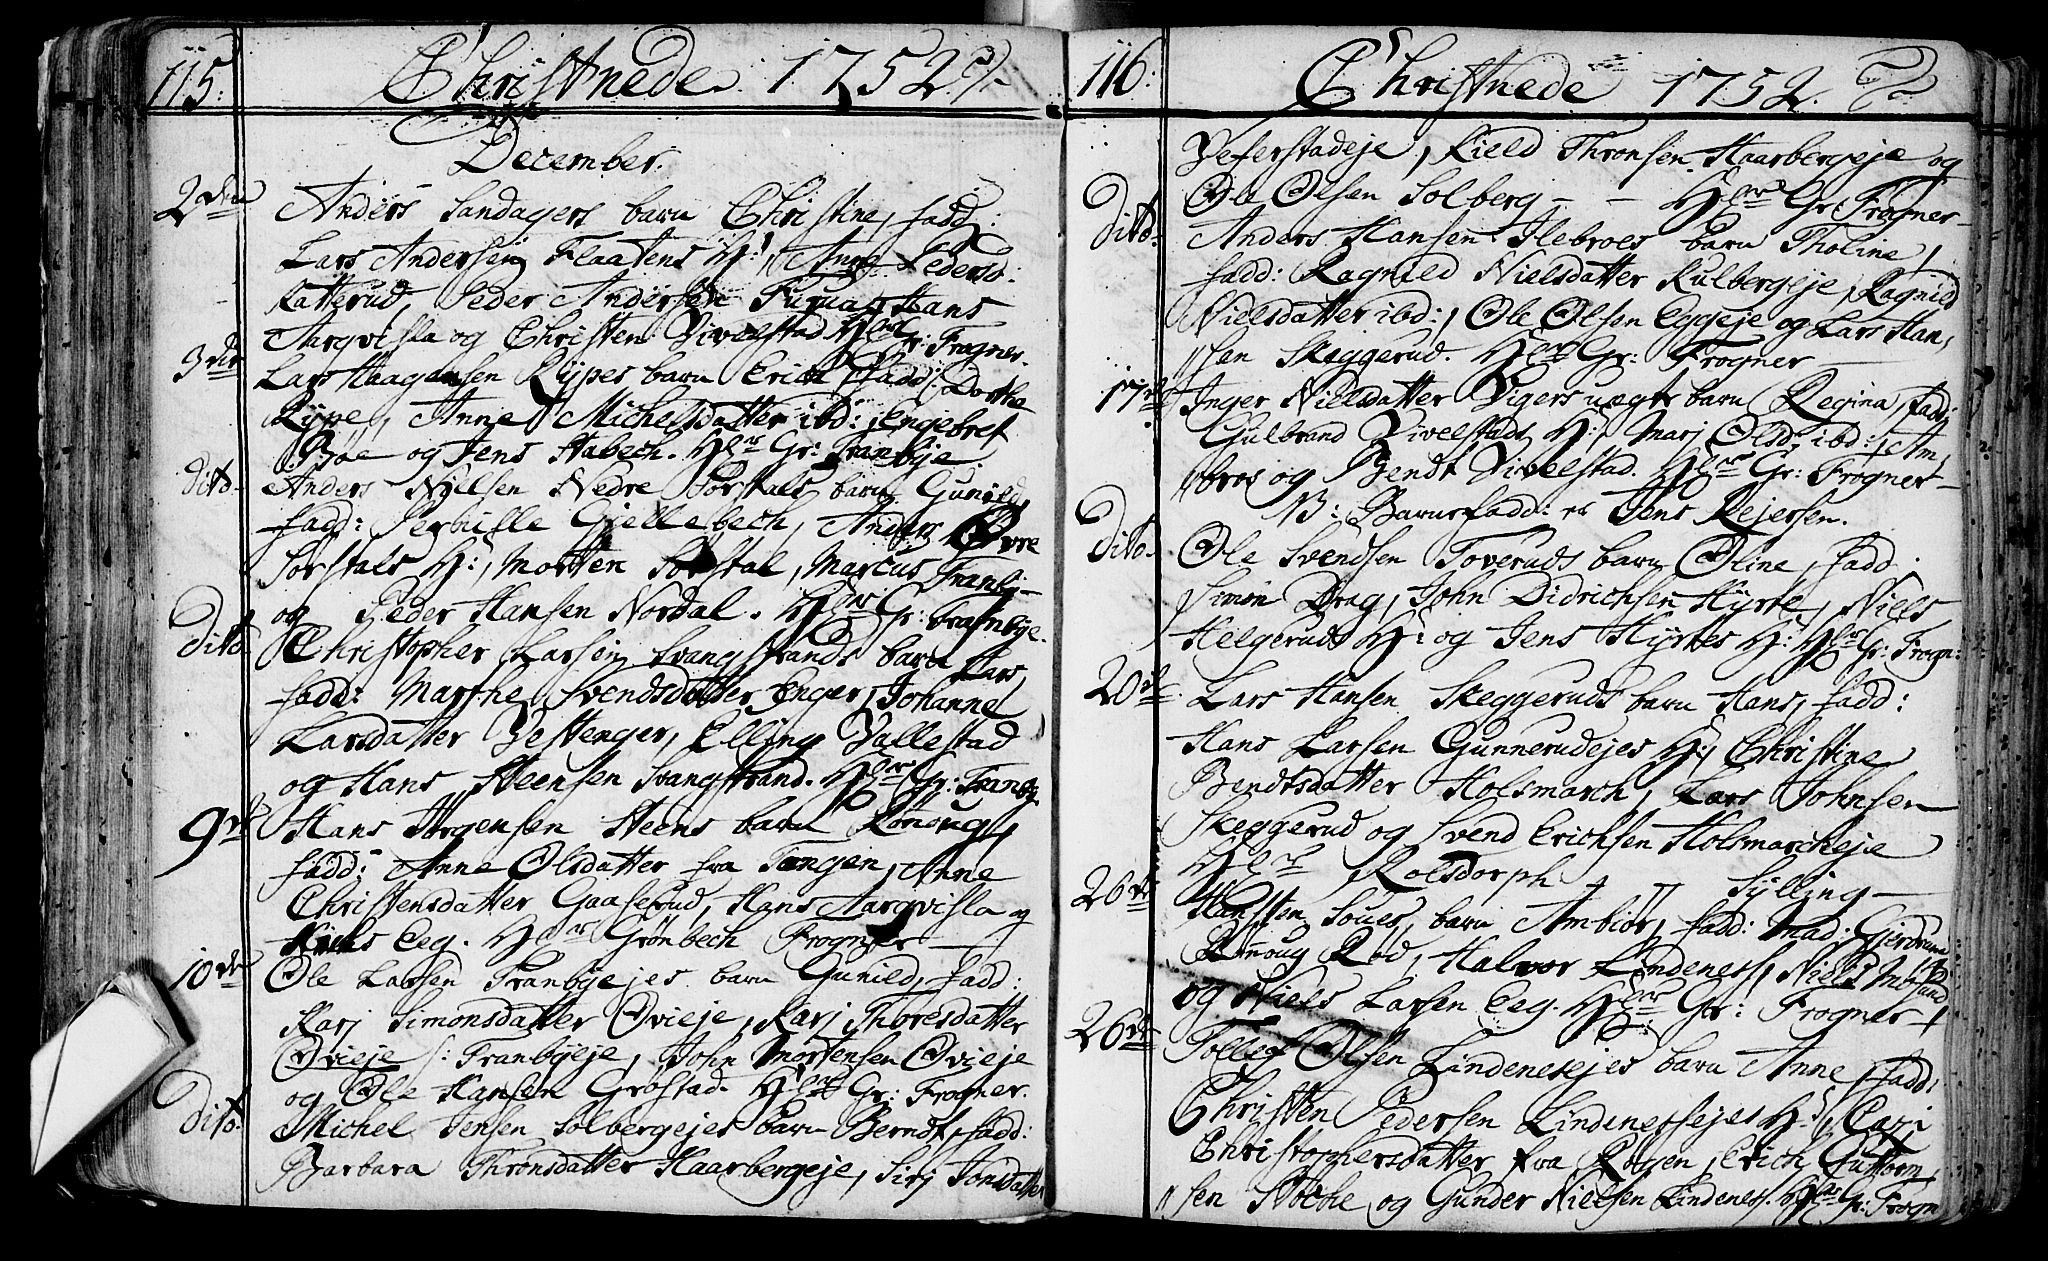 115. Christnede 1752
December.
2den Anders Sandagers barn Christine, fadd:
Lars Andersen Flaatens H:, Anne Peders:
Katterud, Peder Andersen Hans
Aarqvisla og Christen Vivelstad Hlr Gr: Frogner.
3die Lars Haagensen Rypes barn Erich fadd: Dorthe
Rype, Anne Michelsdatter ibd:, Engebret
Bøe og Jens Habech. Hlr Gr: Tranbye.
dito Anders Nielsen Nedre Sørstals barn Gunild,
fadd: Pernille Gjellebech, Anders Øvre
Sørstals H:, Morten Sørstal, Marcus Tranby
og Peder Hansen Nordal. Hlr Gr: Tranbye.
dito Christopher Larsen Svangstrands barn Lars,
fadd: Marthe Svendsdatter Enger, Johanne
Larsdatter Vestenger, Elling Vallestad
og Hans Steensen Svangstrand. Hlr Gr: Tranby
9de Hans Jørgensen Steens barn Rønoug,
fadd: Anne Olsdatter fra Tangen, Anne
Christensdatter Gaaserud, Hans Aarqvisla og
Niels Eeg. Hlr Grønbech Frogner
10de Ole Larsen Tranbyejes barn Gunild, fadd:
Karj Simonsdatter Ovieje, Karj Thoresdatter
Ovieje /: Tranbyeje, John Mortensen Ovieje
og Ole Hansen Grøstad. Hlr Gr: Frogner.
dito. Michel Jensen Solbergejes barn Berndt, fadd:
Barbara Thronsdatter Haarbergeje, Sirj Jonsdatter
116. Christnede 1752.
Veferstadeje, Kield Thronsen Haarbergeje og
Ole Olsen Solberg - - Hlr Gr: Frogner
dito. Anders Hansen Ilebroes barn Tholine,
fadd: Ragnild Nielsdatter Kulbergeje, Ragnild
Nielsdatter ibd:, Ole Olsen Eggeje og Lars Han,
//sen Skeggerud. Hlr Gr: Frogner
17de Inger Nielsdatter Vigers uægte barn Regina, fadd:
Gulbrand Vivelstads H:, Marj Olsd: ibd:, Am,
//bros og Bendt Vivelstad. Hlr Gr: Frogner
NB: Barnefadd: er Jens Rejersen.
dito. Ole Svendsen Toveruds barn Oline, fadd:
Simon Drag, John Didrichsen Hyrte, Niels
Helgeruds H: og Jens Hyrtes H: Hlr Gr: Frogn:
20de Lars Hansen Skeggeruds barn Hans, fadd:
Hans Larsen Gunnerudejes H:, Christine
Bendtsdatter Holsmarch, Lars Johnsen
Skeggerud og Svend Erichsen Holsmarcheje
Hlr Rolsdorph Sylling
26de Hansten Soues barn Ambiør, fadd: Mad: Gjerdrum
Rønnoug Rød, Halvor Lindeness, Niels Mosund
og Niels Larsen Eeg. Hlr Gr: Frogner
26de Tollef Olsen Lindenesejes barn Anne, fadd:
Christen Pedersen Lindenessejes H:, Cari
Christophersdatter fra Røgen, Erich Guttorm,
//sen Støche og Gunder Nielsen Lindeness. Hlr Gr: Frogn